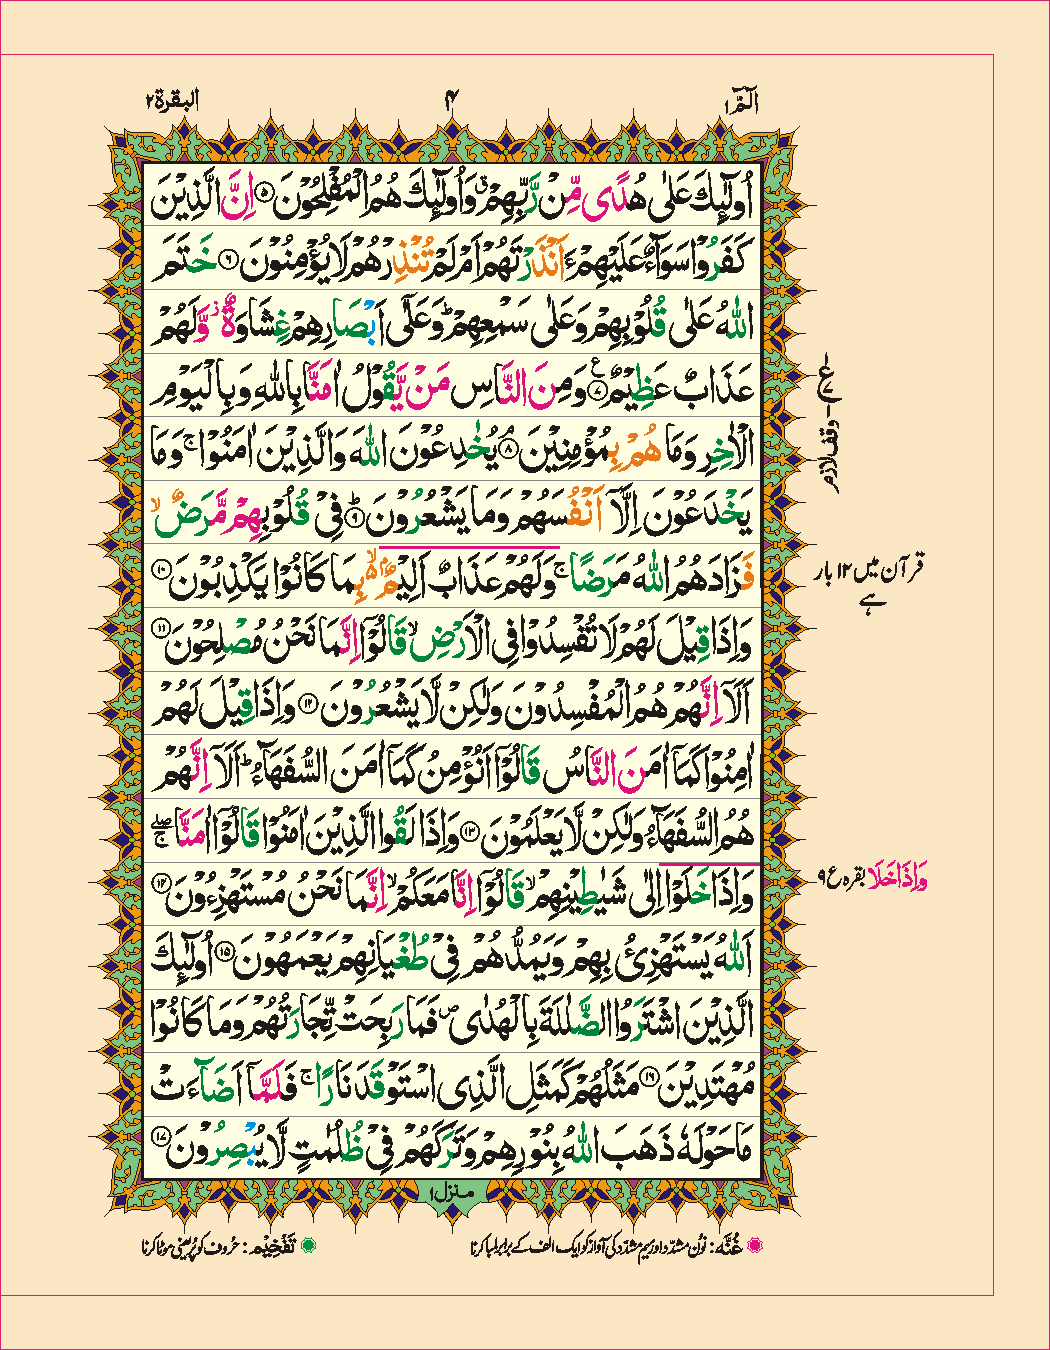 الٓمّٓ ١
٤
البقرة ٢
اُولٰٓئِكَ عَلٰى هُدًى مِّنْ رَّبِّهِمْ ۗ وَاُولٰٓئِكَ هُمُ الْمُفْلِحُوْنَ ﴿٥﴾ اِنَّ الَّذِيْنَ
كَفَرُوْا سَوَآءٌ عَلَيْهِمْ ءَاَنْذَرْتَهُمْ اَمْ لَمْ تُنْذِرْهُمْ لَا يُؤْمِنُوْنَ ﴿٦﴾ خَتَمَ
اللّٰهُ عَلٰى قُلُوْبِهِمْ وَعَلٰى سَمْعِهِمْ ؕ وَعَلٰٓى اَبْصَارِهِمْ غِشَاوَةٌ ؗ وَّلَهُمْ
عَذَابٌ عَظِيْمٌ ﴿٧﴾ ع وَمِنَ النَّاسِ مَنْ يَّقُوْلُ اٰمَنَّا بِاللّٰهِ وَبِالْيَوْمِ
الْاٰخِرِ وَمَا هُمْ بِمُؤْمِنِيْنَ ﴿٨﴾ۘ يُخٰدِعُوْنَ اللّٰهَ وَالَّذِيْنَ اٰمَنُوْا ۚ وَمَا
يَخْدَعُوْنَ اِلَّآ اَنْفُسَهُمْ وَمَا يَشْعُرُوْنَ ﴿٩﴾ؕ فِيْ قُلُوْبِهِمْ مَّرَضٌ ۙ
فَزَادَهُمُ اللّٰهُ مَرَضًا ۚ وَلَهُمْ عَذَابٌ اَلِيْمٌۢ ۙ۬ بِمَا كَانُوْا يَكْذِبُوْنَ ﴿١٠﴾
وَاِذَا قِيْلَ لَهُمْ لَا تُفْسِدُوْا فِي الْاَرْضِ ۙ قَالُوْٓا اِنَّمَا نَحْنُ مُصْلِحُوْنَ ﴿١١﴾
اَلَآ اِنَّهُمْ هُمُ الْمُفْسِدُوْنَ وَلٰكِنْ لَّا يَشْعُرُوْنَ ﴿١٢﴾ وَاِذَا قِيْلَ لَهُمْ
اٰمِنُوْا كَمَآ اٰمَنَ النَّاسُ قَالُوْٓا اَنُؤْمِنُ كَمَآ اٰمَنَ السُّفَهَآءُ ؕ اَلَآ اِنَّهُمْ
هُمُ السُّفَهَآءُ وَلٰكِنْ لَّا يَعْلَمُوْنَ ﴿١٣﴾ وَاِذَا لَقُوا الَّذِيْنَ اٰمَنُوْا قَالُوْٓا اٰمَنَّا ۖۚ
وَاِذَا خَلَوْا اِلٰى شَيٰطِيْنِهِمْ ۙ قَالُوْٓا اِنَّا مَعَكُمْ ۙ اِنَّمَا نَحْنُ مُسْتَهْزِءُوْنَ ﴿١٤﴾
اَللّٰهُ يَسْتَهْزِئُ بِهِمْ وَيَمُدُّهُمْ فِيْ طُغْيَانِهِمْ يَعْمَهُوْنَ ﴿١٥﴾ اُولٰٓئِكَ
الَّذِيْنَ اشْتَرَوُا الضَّلٰلَةَ بِالْهُدٰى ۪ فَمَا رَبِحَتْ تِّجَارَتُهُمْ وَمَا كَانُوْا
مُهْتَدِيْنَ ﴿١٦﴾ مَثَلُهُمْ كَمَثَلِ الَّذِى اسْتَوْقَدَ نَارًا ۚ فَلَمَّآ اَضَآءَتْ
مَا حَوْلَهٗ ذَهَبَ اللّٰهُ بِنُوْرِهِمْ وَتَرَكَهُمْ فِيْ ظُلُمٰتٍ لَّا يُبْصِرُوْنَ ﴿١٧﴾
ع
وقف لازم
قرآن میں ۱۲ بار
ہے
وَاِذَا خَلَا بقرہ ع ۹
منزل ١
غُنَّہ: نوُن مشدّد اور میم مشدّد کی آواز کو ایک الف کے برابر لمبا کرنا
تَفْخِیْم: حُروف کو پُر یعنی موٹا کرنا